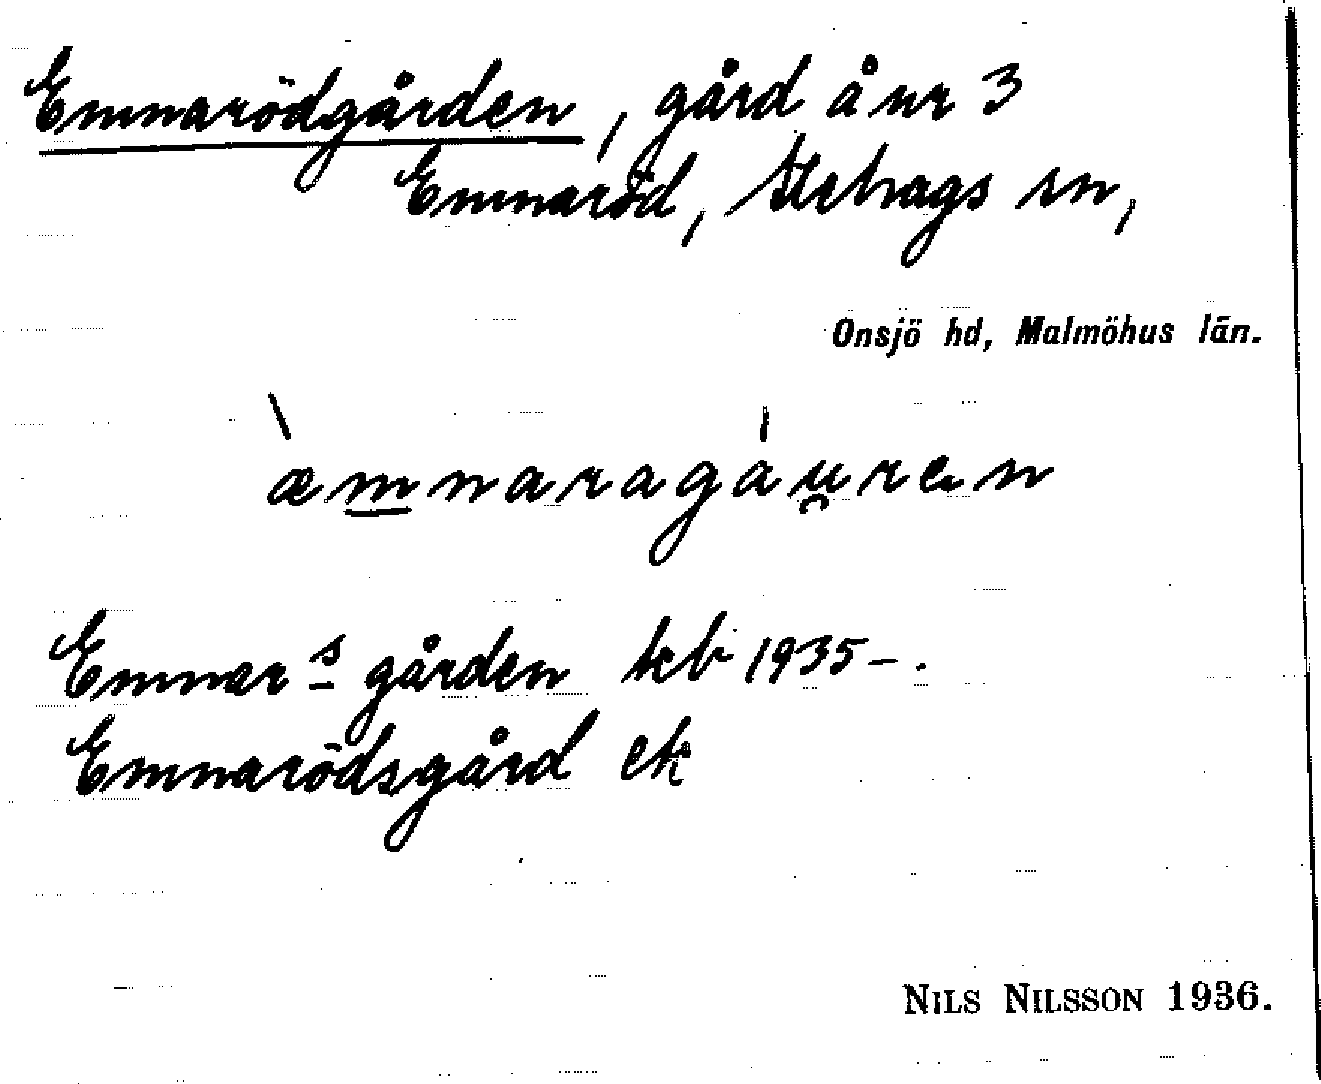 Emnarödgården, gård å nr 3
Emnaröd, Stehags sn,
Onsjö hd, Malmöhus län.
æm̲naragau̯ren
Emnarsgården kb 1935–.
Emnarödsgård ek
NILS NILSSON 1936.